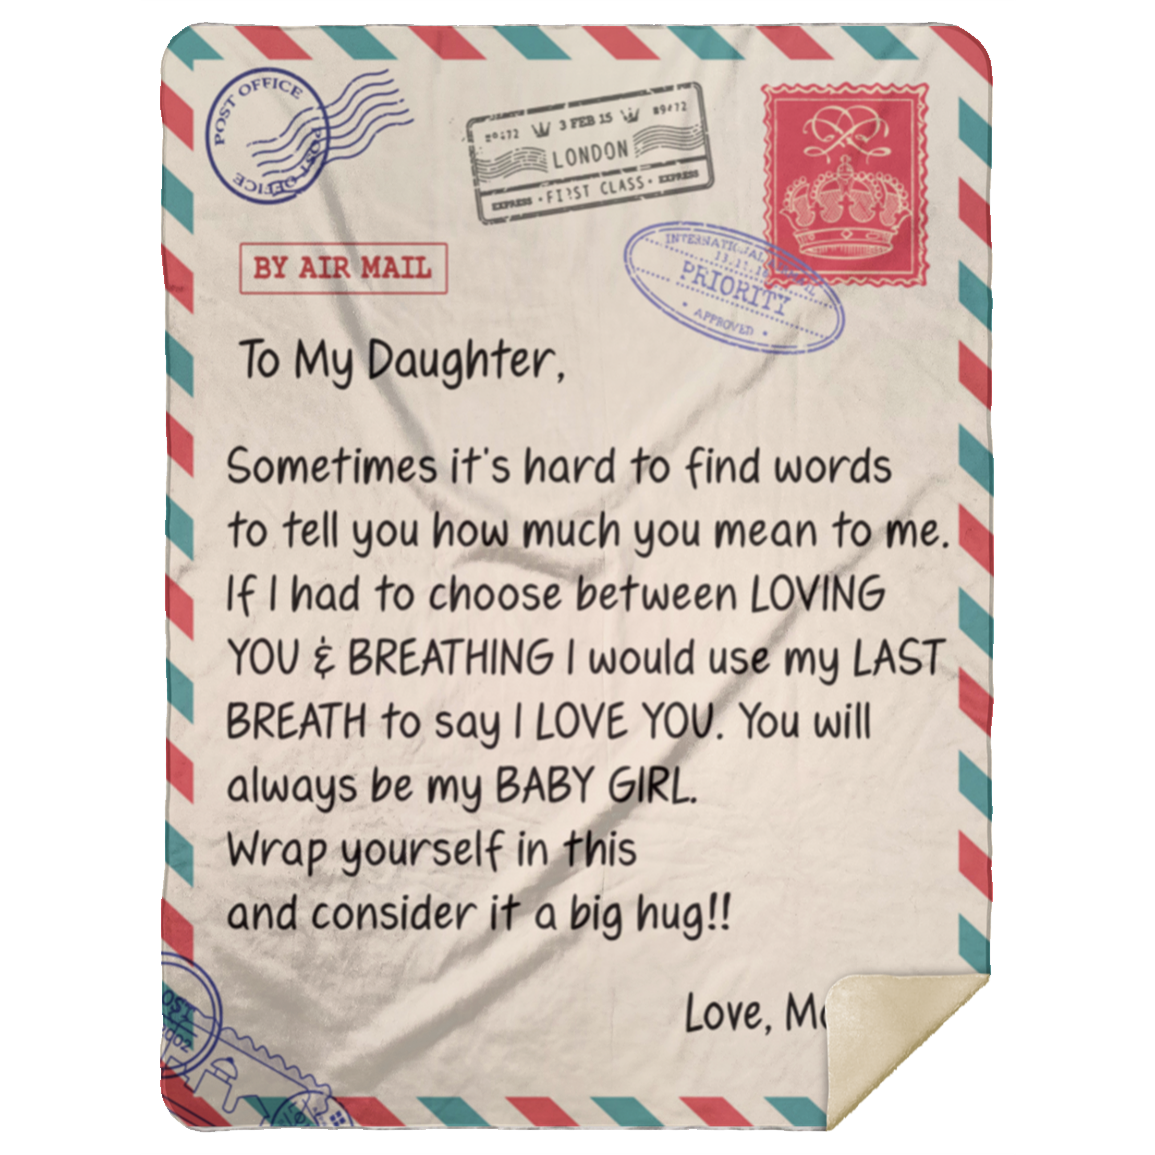 POST OFFICE
POST OFFICE
3 FEB 15
LONDON
FI?ST CLASS
EXPRESS
EXPRESS
INTERNATIONAL
PRIORITY
APPROVED
BY AIR MAIL
To My Daughter,
Sometimes it's hard to find words
to tell you how much you mean to me.
If I had to choose between LOVING
YOU & BREATHING I would use my LAST
BREATH to say I LOVE YOU. You will
always be my BABY GIRL.
Wrap yourself in this
and consider it a big hug!!
Love, Mo